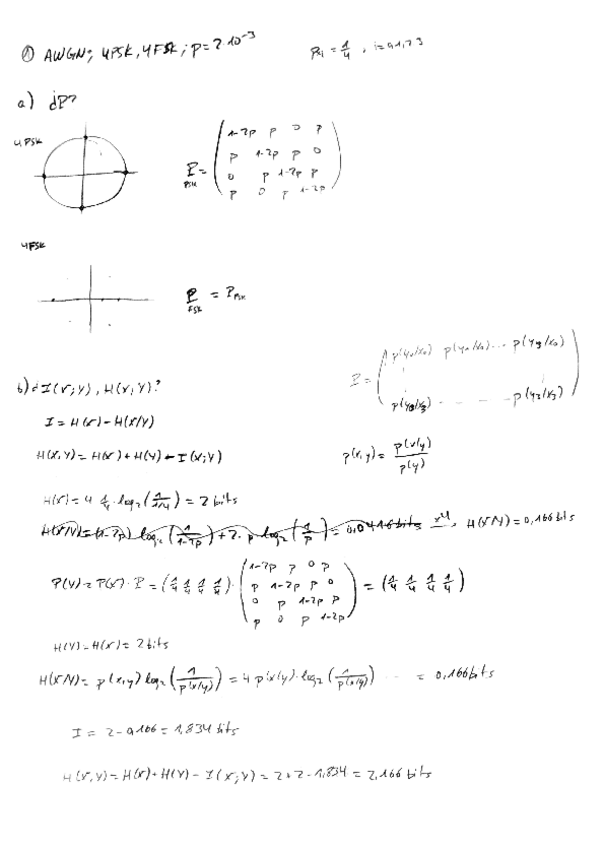 ① AWGN; 4PSK, 4FSK; p=2·10⁻³ Pxi = 1/4, i=0,1,2,3
a) ¿P?
4PSK
P_PSK = (1-2p p 0 p
p 1-2p p 0
0 p 1-2p p
p 0 p 1-2p)
4FSK
P_FSK = P_PSK
P = (p(y0/x0) p(y1/x0) ... p(y3/x0)
p(y0/x3) - - - -p(y3/x3))
b) ¿I(X;Y), H(X,Y)?
I = H(X) - H(X/Y)
H(X,Y) = H(X) + H(Y) - I(X;Y)
p(x,y) = p(x/y) / p(y)
H(X) = 4 1/4 · log₂(1/(1/4)) = 2 bits
H(X/Y) = (1-2p) log₂(1/(1-2p)) + 2·p log₂(1/p) = 0,0416 bits x4, H(X/Y) = 0,166 bits
P(Y) = P(X)·P = (1/4 1/4 1/4 1/4) · (1-2p p 0 p
p 1-2p p 0
0 p 1-2p p
p 0 p 1-2p) = (1/4 1/4 1/4 1/4)
H(Y) = H(X) = 2 bits
H(X/Y) = p(x,y) log₂(1/p(x/y)) = 4 p(x/y)·log₂(1/p(x/y)) ... = 0,166 bits
I = 2 - 0,166 = 1,834 bits
H(X,Y) = H(X) + H(Y) - I(X;Y) = 2 + 2 - 1,834 = 2,166 bits